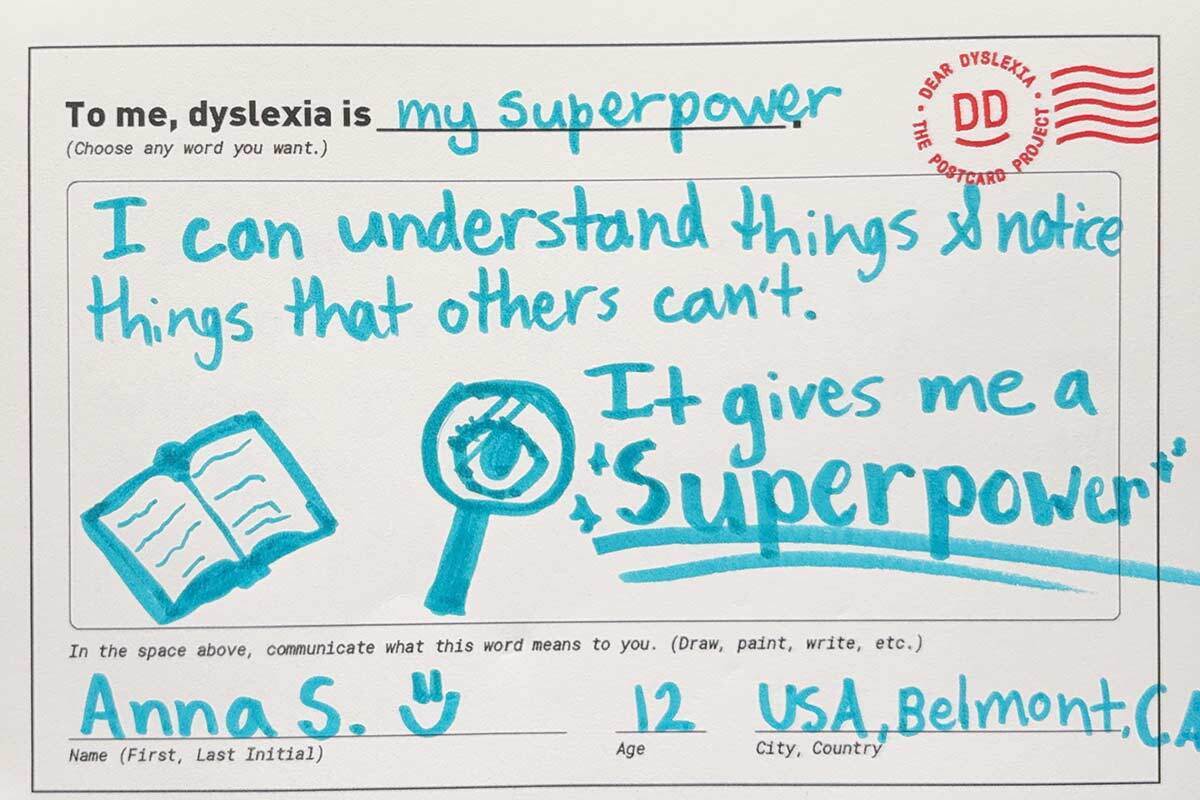 To me, dyslexia is my superpower.
(Choose any word you want.)
• DEAR DYSLEXIA • THE POSTCARD PROJECT
DD
I can understand things & notice
things that others can't.
It gives me a
Superpower
In the space above, communicate what this word means to you. (Draw, paint, write, etc.)
Anna S. 12 USA, Belmont, CA
Name (First, Last Initial) Age City, Country